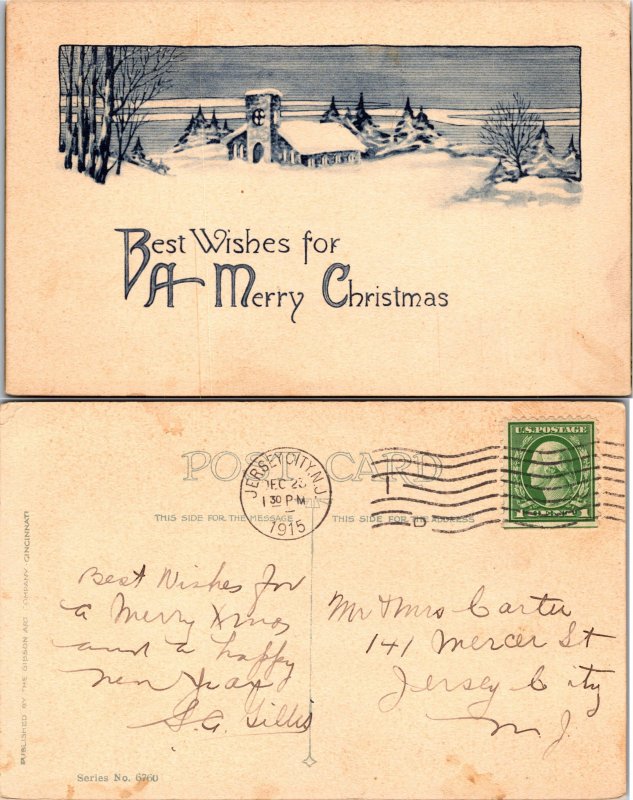 Best Wishes for
A Merry Christmas
POST CARD
JERSEY CITY, N.J.
DEC 23
1 30 PM
1915
U.S. POSTAGE
THIS SIDE FOR THE MESSAGE
THIS SIDE FOR THE ADDRESS
Best Wishes for
a Merry Xmas
and a happy
new year
S.A. Gillis
Mr & Mrs Carter
141 Mercer St
Jersey City
N. J.
PUBLISHED BY THE GIBSON ART COMPANY CINCINNATI
Series No. 6760